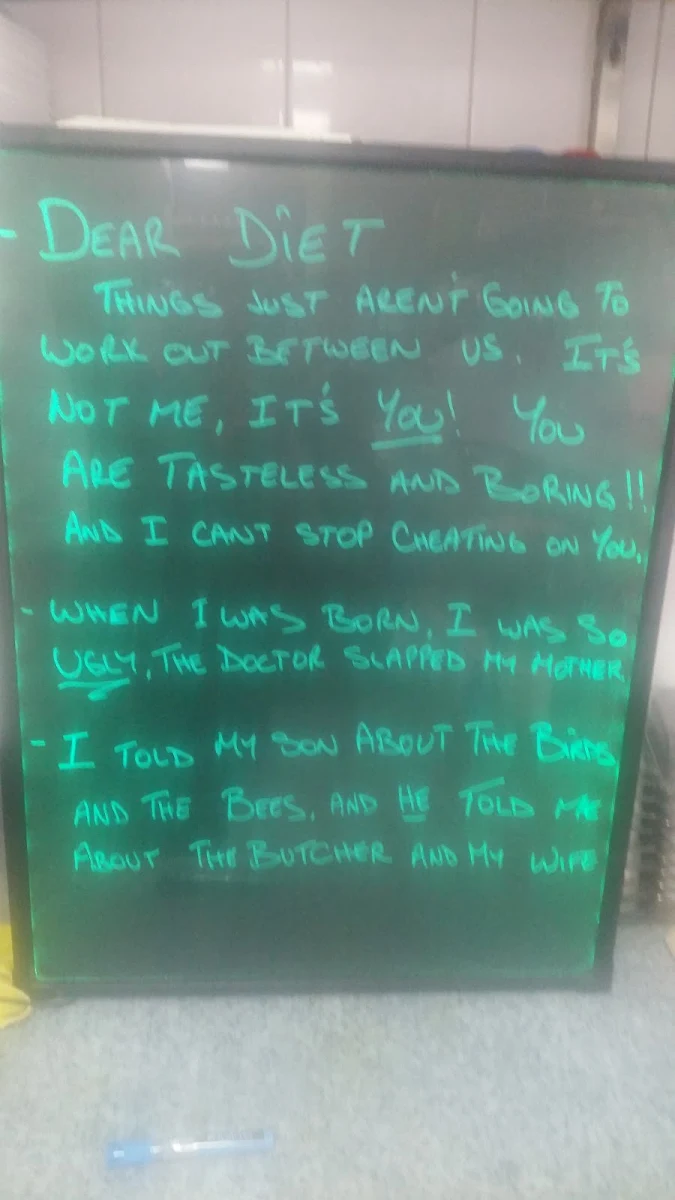 - DEAR DIET
THINGS JUST AREN'T GOING TO
WORK OUT BETWEEN US. IT'S
NOT ME, IT'S YOU! YOU
ARE TASTELESS AND BORING!!
AND I CANT STOP CHEATING ON YOU.
- WHEN I WAS BORN, I WAS SO
UGLY, THE DOCTOR SLAPPED MY MOTHER.
- I TOLD MY SON ABOUT THE BIRDS
AND THE BEES, AND HE TOLD ME
ABOUT THE BUTCHER AND MY WIFE